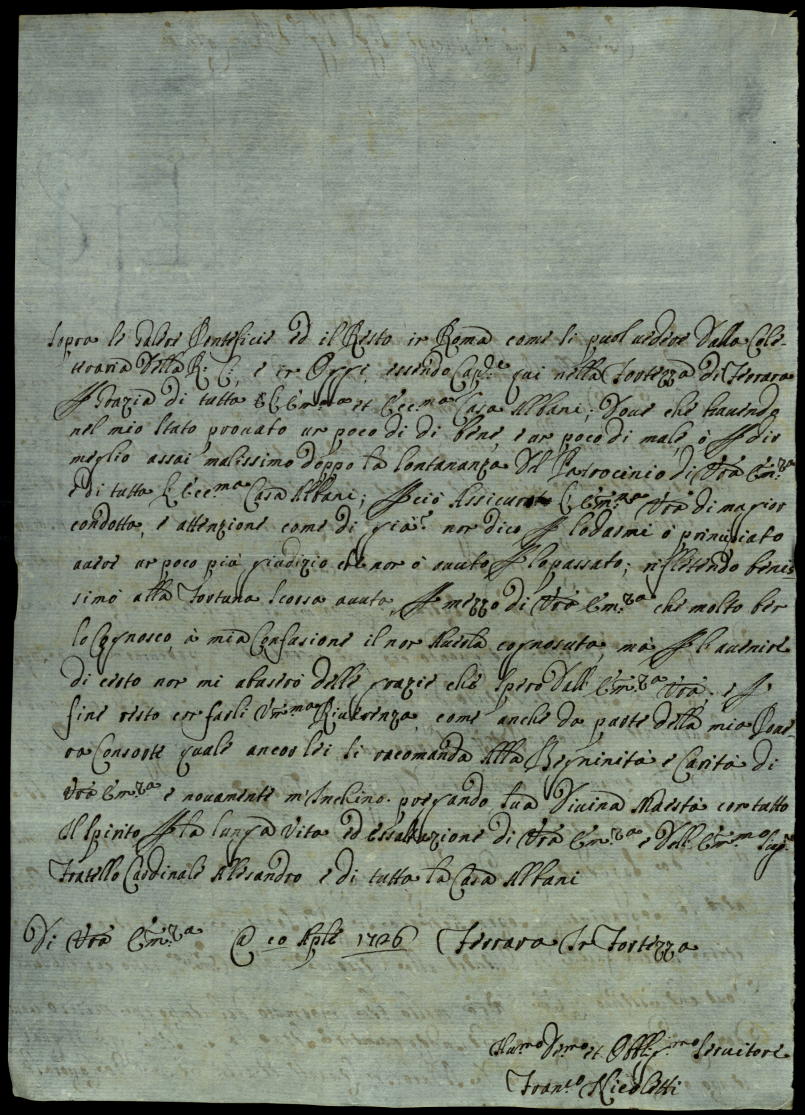 sopra le Galere Ponteficie ed il Resto in Roma come si puol vedere dalla Cle-
 della R: C:, e in Oggi, essendo Cap:le qui nella Fortezza di Ferrara
P Grazia di tutta L'Em:ma et Ecc:ma Casa Albani; Dove che havendo
nel mio stato provato un poco di di bene, e un poco di male, ò P dir
meglio assai malissimo doppo la lontananza del Patrocinio di Vrã Em:za
e di tutta L'Ecc:ma Casa Albani; P ciò Assicuro L'Em:za Vrã di magior
condotta, e attenzione come di già non dico P lodarmi ò principiato
avere un poco più giudizio che non ò avuto P lo passato; riflettendo benis-
simo alla Fortuna scorsa avuta P mezzo di Vrã Em:za che molto ben
lo Cognosco, à mia Confusione il non Haverla cognosciuta, mà P l'avenire
di certo non mi abuserò delle grazie che spero dall'Em:za Vrã, e P
fine resto con farli Um:ma Riverenza, come anche da parte della mia Pove-
ra Consorte quale ancor lei si racomanda alla Begninità e Carità di
Vrã Em:za e novamente m'Inchino pregando Sua Divina Maestà con tutto
il Spirito P la lunga Vita ed Essaltazione di Vrã Em:za e dell'Em:mo Suo
Fratello Cardinale Alesandro e di tutta la Casa Albani
Di Vrã Em:za @ 10 Aple 1726 Ferrara In Fortezza
Hu:mo De:mo et Obblig:mo Servitore
Fran:co Nicoletti